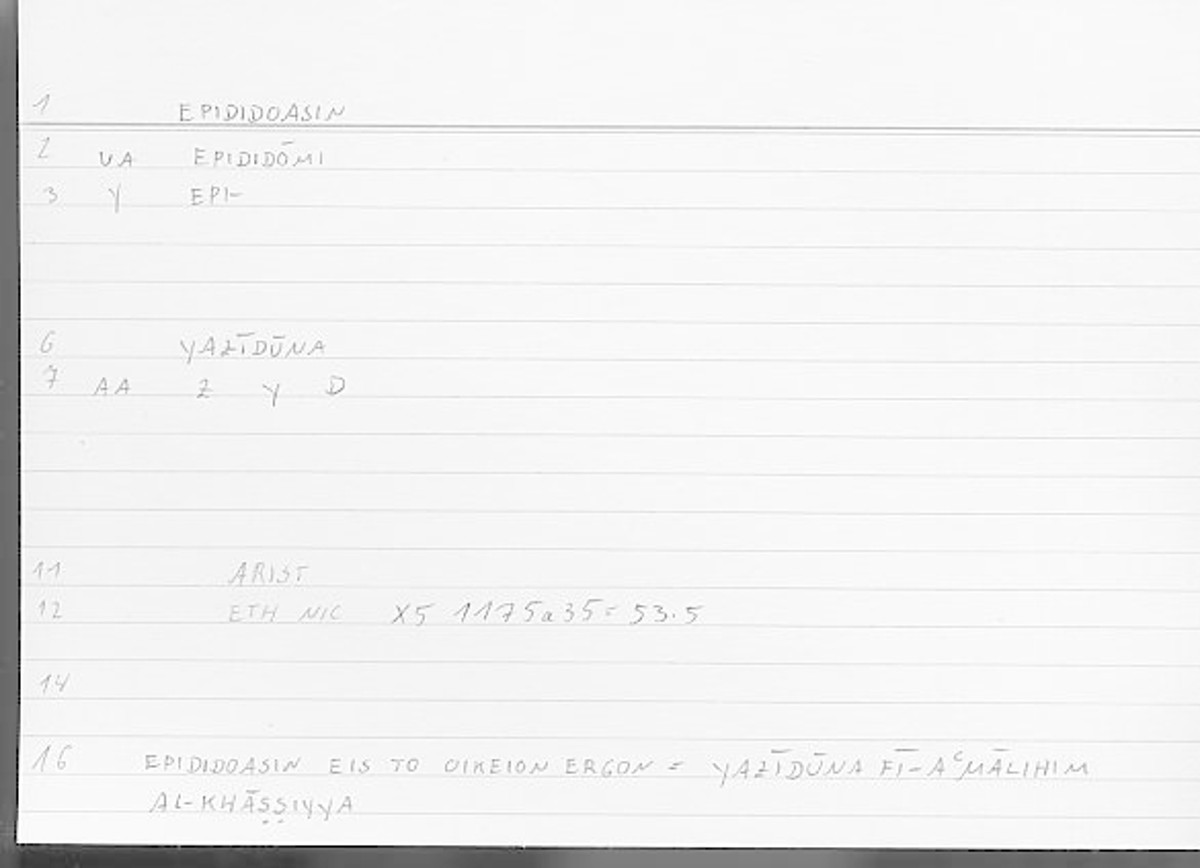 1 EPIDIDOASIN
2 VA EPIDIDŌMI
3 Y EPI-
6 YAZĪDŪNA
7 AA Z Y D
11 ARIST
12 ETH NIC X5 1175a35= 53.5
14
16 EPIDIDOASIN EIS TO OIKEION ERGON = YAZĪDŪNA FĪ-AʿMĀLIHIM
AL-KHĀṢṢIYYA